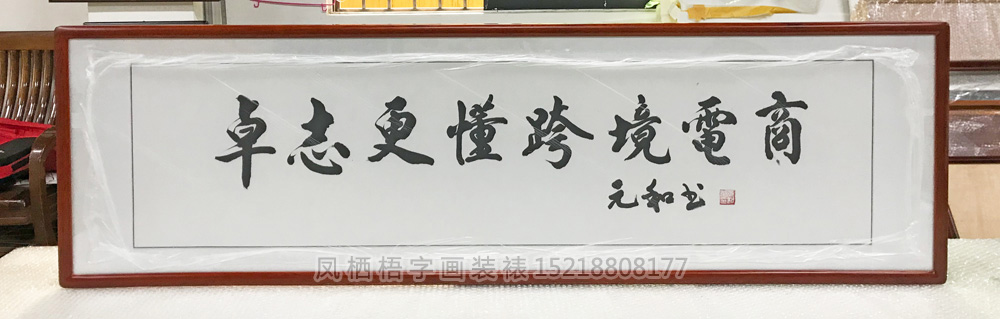 卓志更懂跨境電商
元和书
凤栖梧字画装裱15218808177